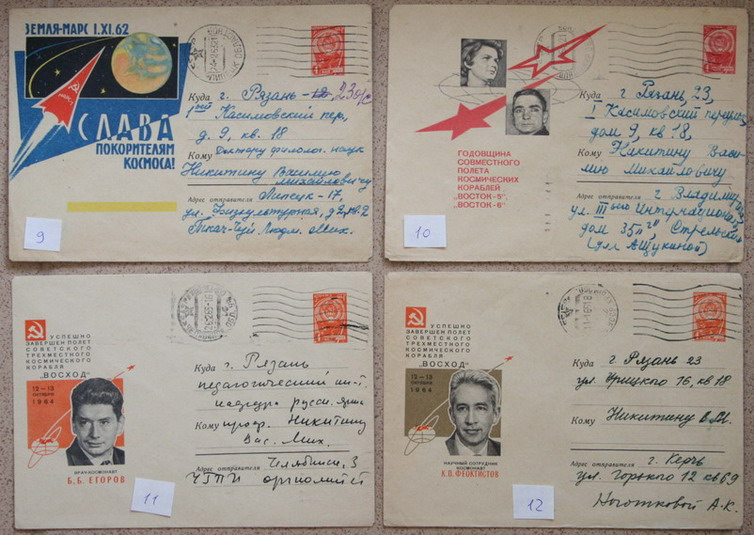 ЗЕМЛЯ-МАРС 1.XI.62
СЛАВА
ПОКОРИТЕЛЯМ
КОСМОСА!
Куда г. Рязань
Касимовский пер,
д. 9, кв. 18
Кому Доктору филолог. наук
Никитину Василию
Михайловичу
Адрес отправителя Липецк-17,
9
ГОДОВЩИНА
СОВМЕСТНОГО
ПОЛЕТА
КОСМИЧЕСКИХ
КОРАБЛЕЙ
„ВОСТОК-5",
„ВОСТОК-6"
Куда г. Рязань, 23,
I Касимовский переулок
дом 9, кв 18,
Кому Никитину Васи-
лию Михайловичу
Адрес отправителя г. Владимир
ул. III его Интернационала
дом 35
(для Ащукиной)
10
УСПЕШНО
ЗАВЕРШЕН ПОЛЕТ
СОВЕТСКОГО
ТРЕХМЕСТНОГО
КОСМИЧЕСКОГО
КОРАБЛЯ
„ВОСХОД"
12–13
ОКТЯБРЯ
1964
ВРАЧ-КОСМОНАВТ
Б.Б. ЕГОРОВ
Куда г. Рязань
педагогический ин-т
кафедра русск. языка
Кому проф. Никитину
Вас. Мих.
Адрес отправителя Челябинск, 3
ЧГПИ
11
УСПЕШНО
ЗАВЕРШЕН ПОЛЕТ
СОВЕТСКОГО
ТРЕХМЕСТНОГО
КОСМИЧЕСКОГО
КОРАБЛЯ
„ВОСХОД"
12–13
ОКТЯБРЯ
1964
НАУЧНЫЙ СОТРУДНИК
КОСМОНАВТ
К.П. ФЕОКТИСТОВ
Куда г Рязань 23
ул. Урицкого 16, кв 18
Кому Никитину В.М.
Адрес отправителя г. Керчь
ул. Горького 12 кв 69
Ноготковой А.К.
12